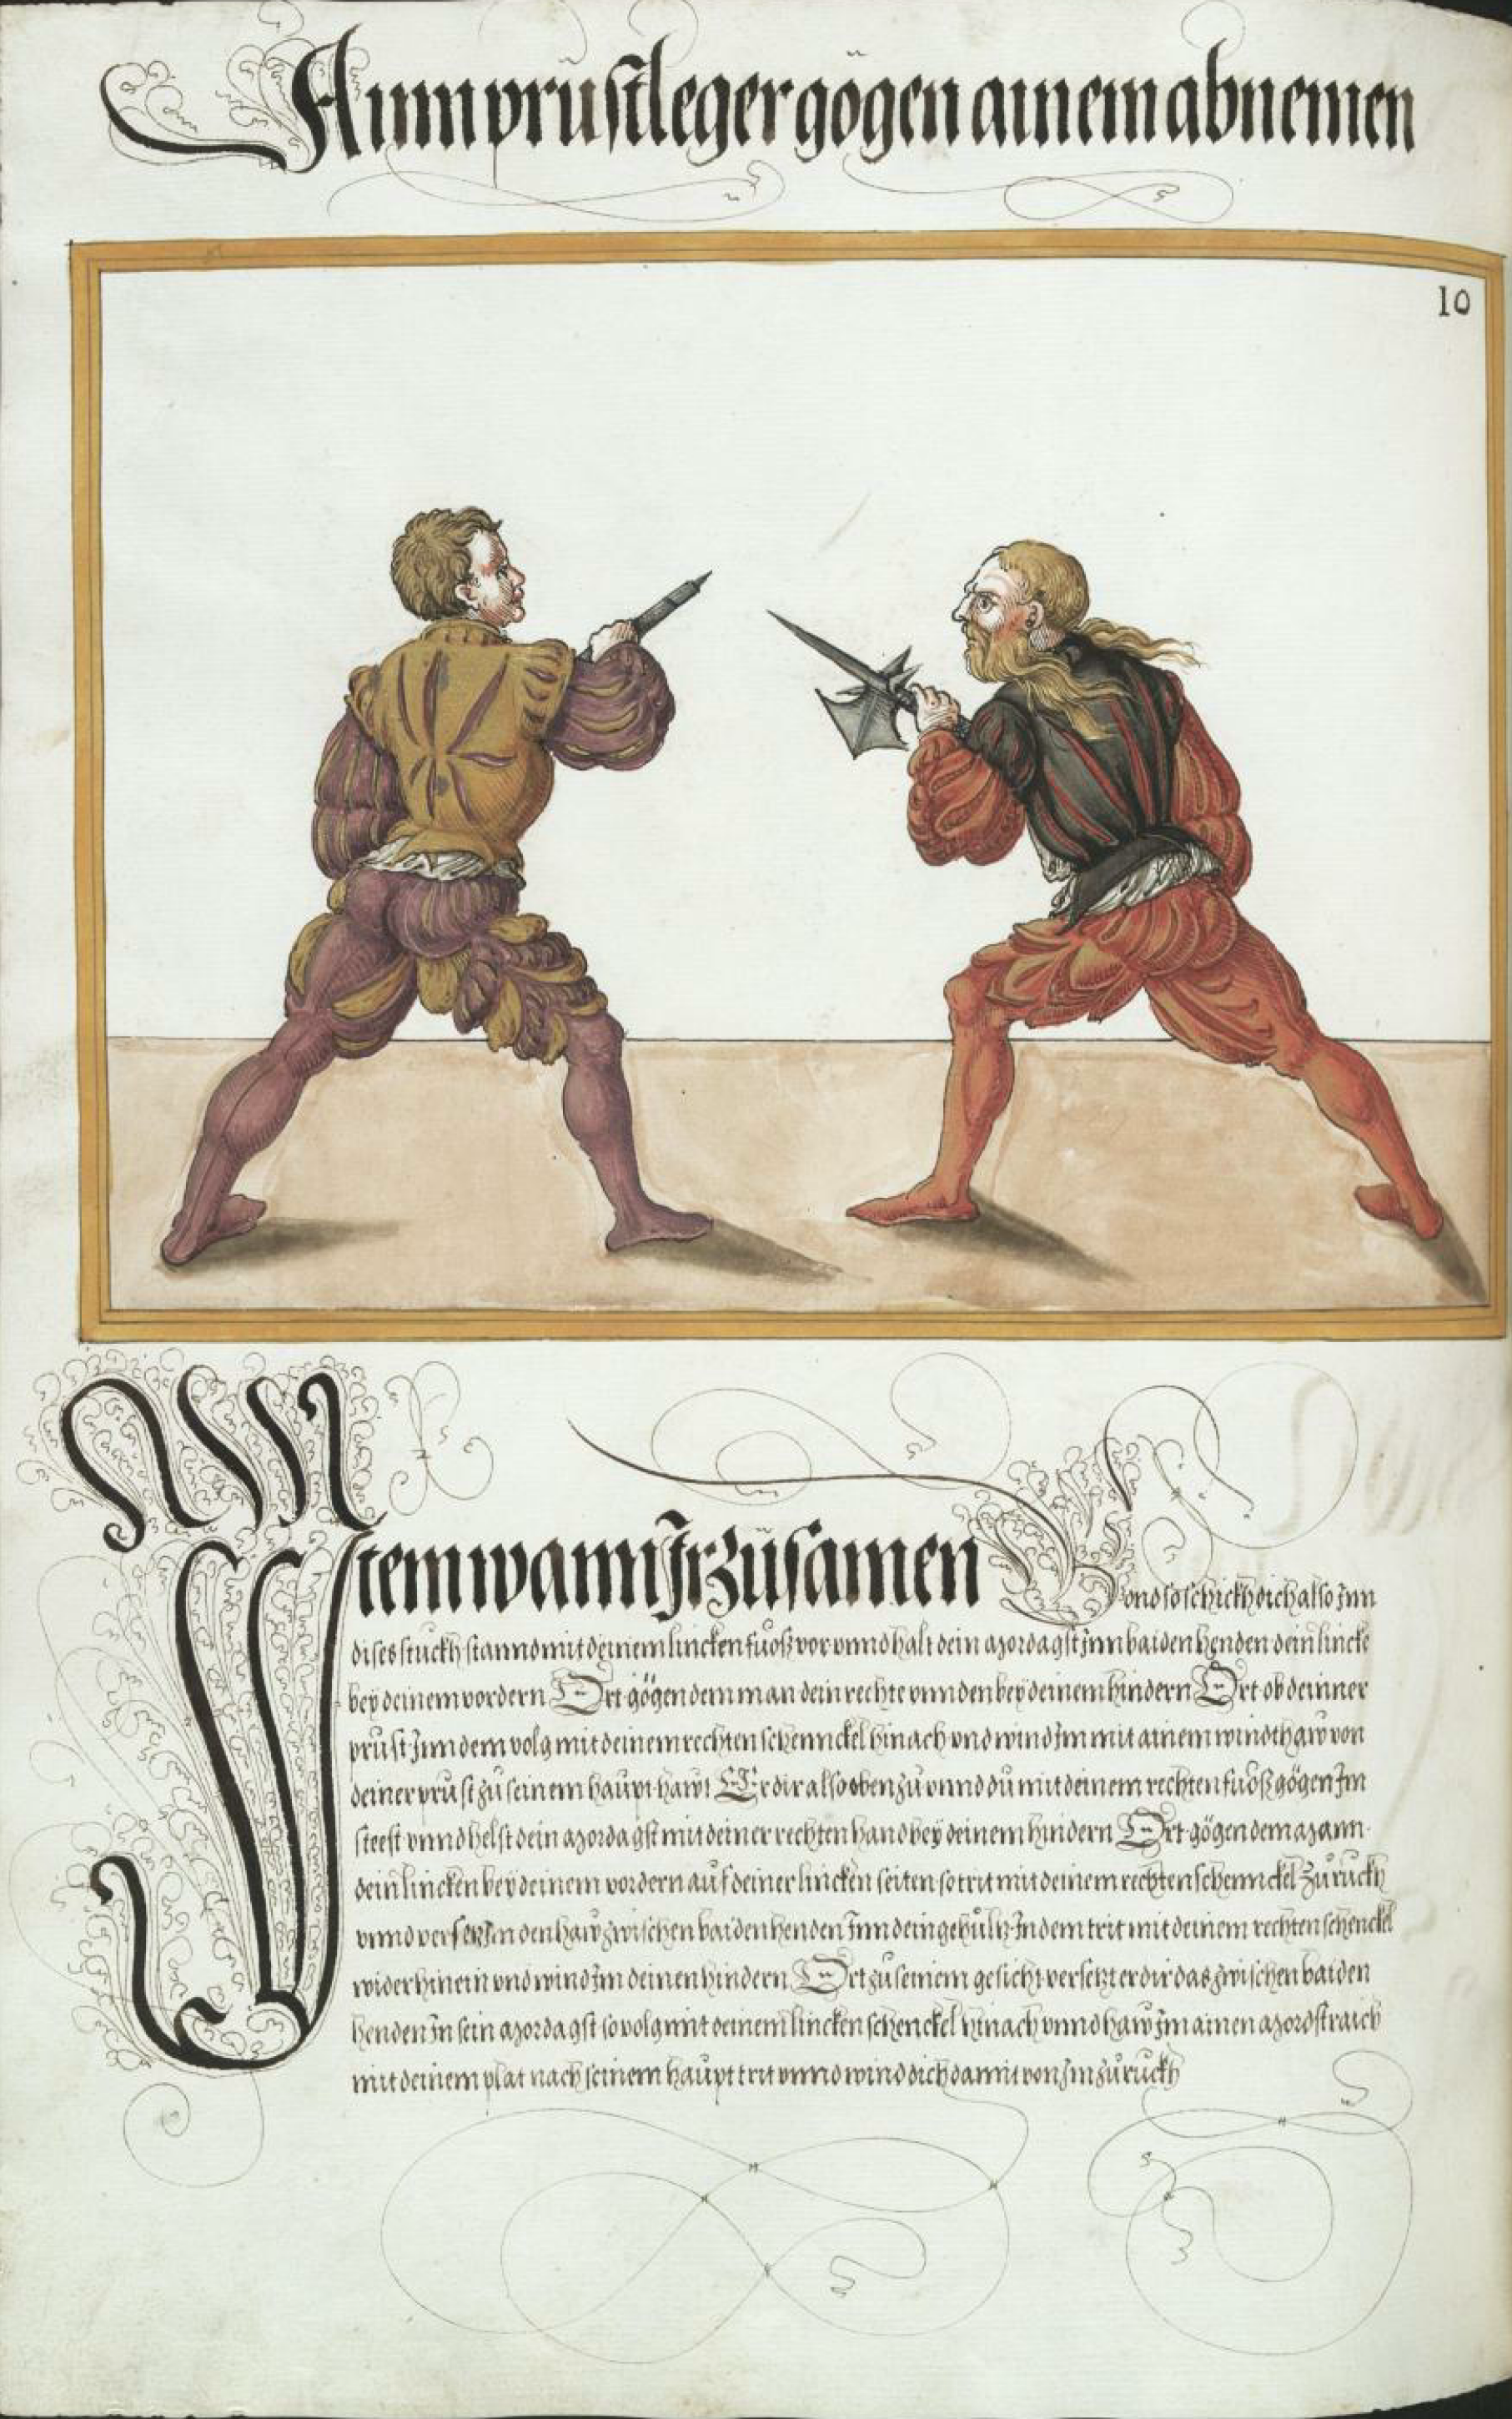 Ainn prustleger gögen ainem abnemen
10
Item wann Ir zusamen
Gond so schickh dich also Jnn
dises stuckh stannd mit deinem lincken fuoß vor vnnd halt dein mordagst Jnn baiden henden dein lincke
bey deinem vordern Ort gögen dem man dein rechte vnnden bey deinem hindern Ort ob deinner
prust Jnn dem volg mit deinem rechten schennckel hinach vnd wind Jm mit ainem windthaw von
deiner prust zu seinem haupt hawt Er dir also oben zu vnnd du mit deinem rechten fuoß gögen Jm
steest vnnd helst dein mordagst mit deiner rechten hand bey deinem hindern Ort gögen dem mann
dein lincken bey deinem vordern auf deiner lincken seiten so trit mit deinem rechten schennckel zuruckh
vnnd versetz Jm den haw zwischen baiden henden Jnn dein gehultz Jn dem trit mit deinem rechten schenckel
wider hinein vnd wind Jm deinen hindern Ort zu seinem gesicht versetzt er dir das zwischen baiden
henden Jn sein mordagst so volg mit deinem lincken schenckel hinach vnnd haw Jm ainen mordstraich
mit deinem plat nach seinem haupt trit vnnd wind dich damit von Jm zuruckh